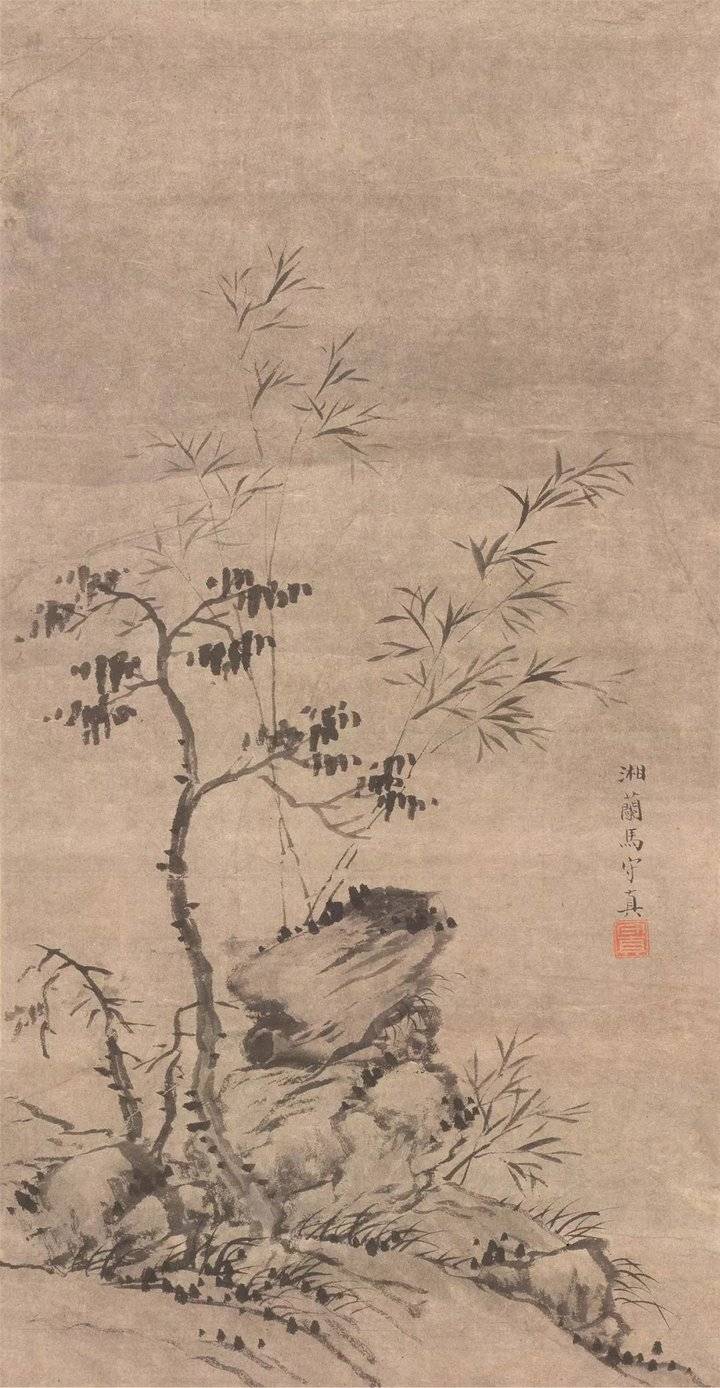 湘蘭馬守真